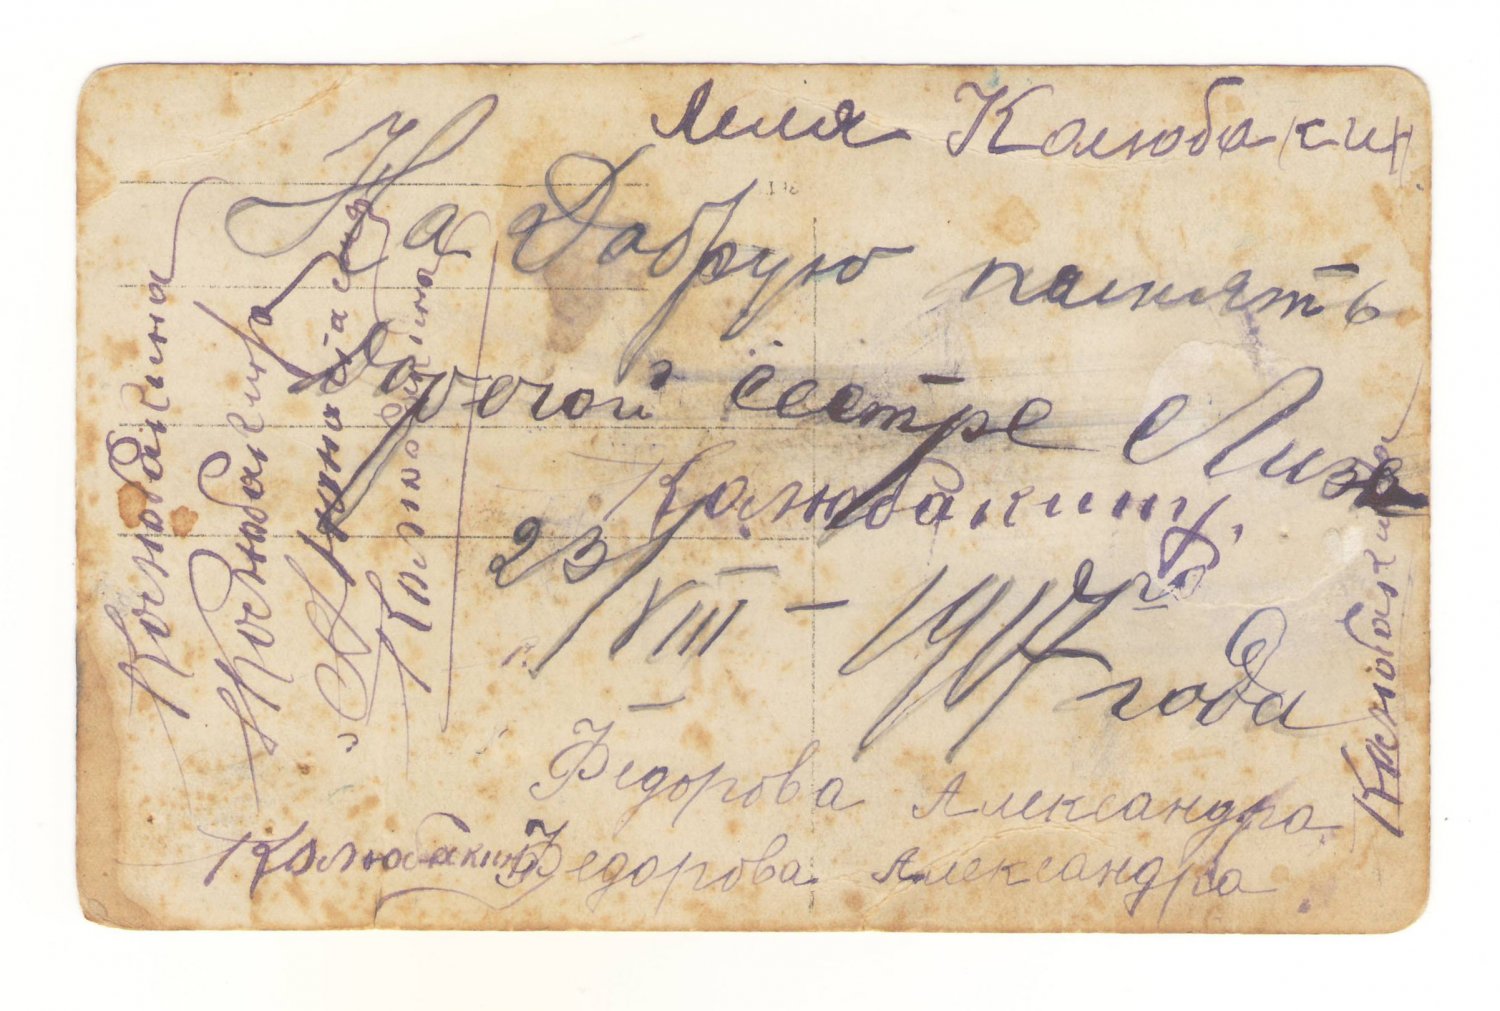 Леля Колюбакин
На Добрую память
Дорогой сестре Лизе
Колюбакиной
23/VIII – 1917 го
года
Федорова Александра
Федорова Александра
Колюбакин
Колюбакина
Колюбакина
Колюбакина
Колюбакина